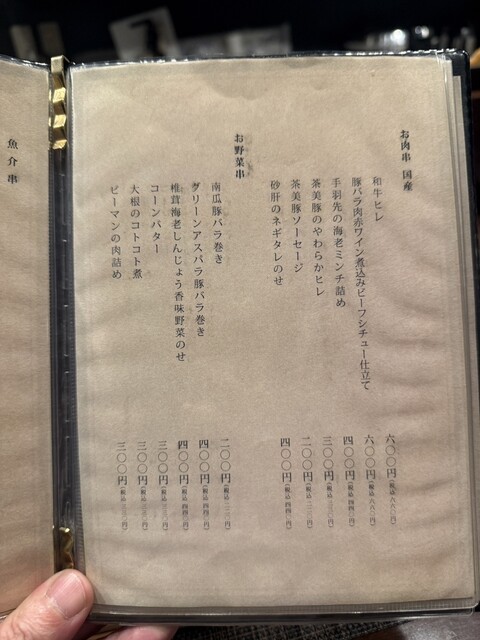 お肉串 国産
和牛ヒレ 六〇〇円(税込 六六〇円)
豚バラ肉赤ワイン煮込みビーフシチュー仕立て 六〇〇円(税込 六六〇円)
手羽先の海老ミンチ詰め 四〇〇円(税込 四四〇円)
茶美豚のやわらかヒレ 三〇〇円(税込 三三〇円)
茶美豚ソーセージ 二〇〇円(税込 二二〇円)
砂肝のネギタレのせ 四〇〇円(税込 四四〇円)
お野菜串
南瓜豚バラ巻き 二〇〇円(税込 二二〇円)
グリーンアスパラ豚バラ巻き 四〇〇円(税込 四四〇円)
椎茸海老しんじょう香味野菜のせ 四〇〇円(税込 四四〇円)
コーンバター 三〇〇円(税込 三三〇円)
大根のコトコト煮 三〇〇円(税込 三三〇円)
ピーマンの肉詰め 三〇〇円(税込 三三〇円)
魚介串